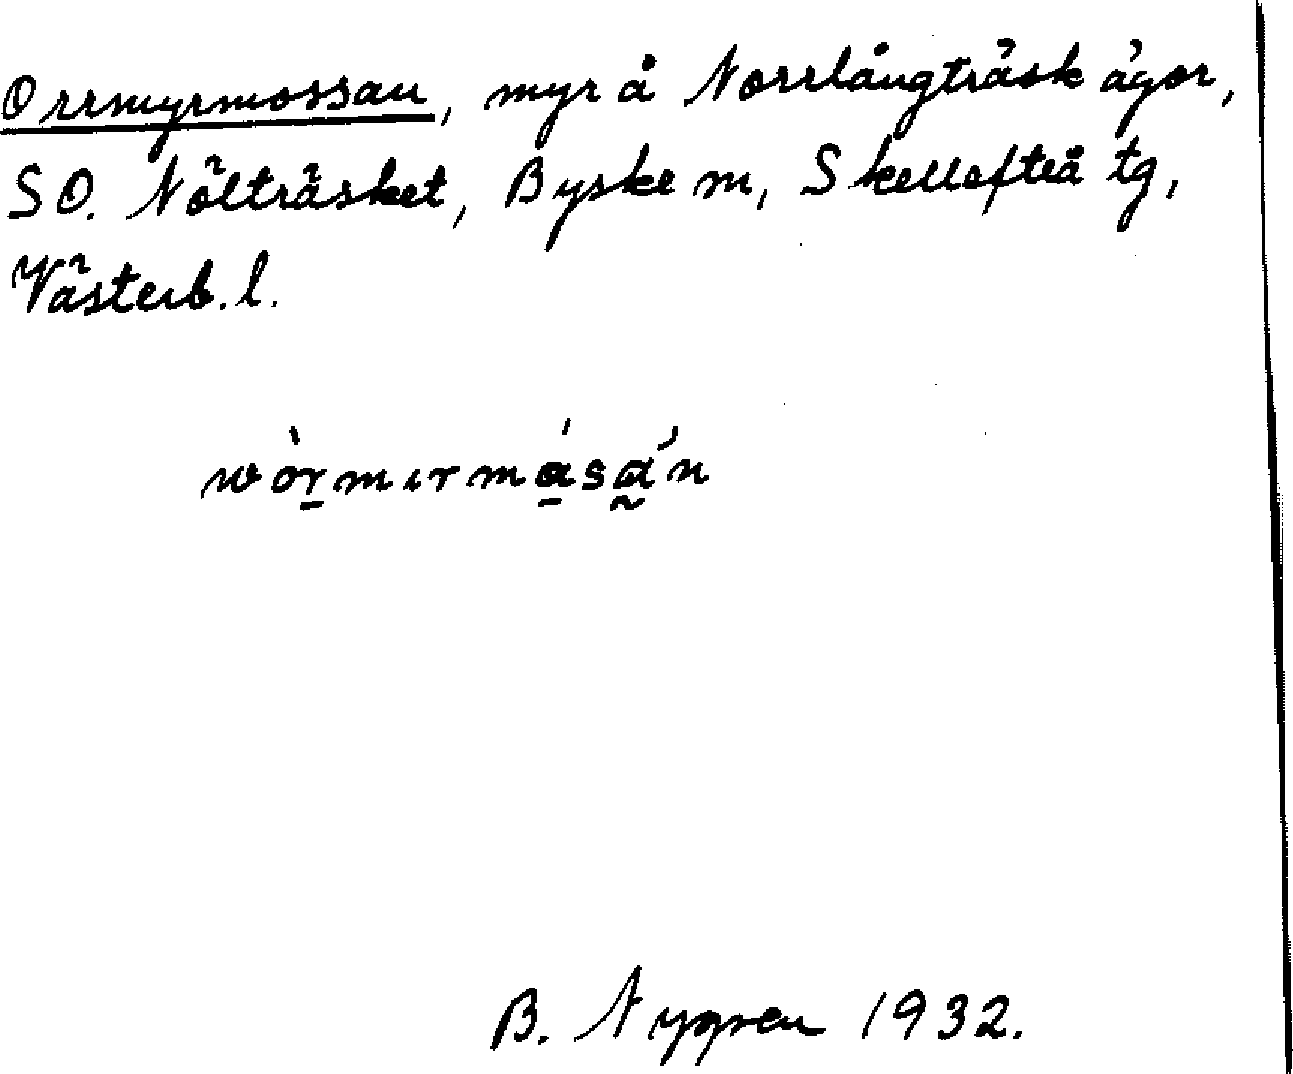 Orrmyrmossan, myr å Norrlångträsk ägor,
SO. Nölträsket, Byske sn, Skellefteå tg,
Västerb. l.
wòr̠mırmá̠sa̰ń
B. Nygren 1932.